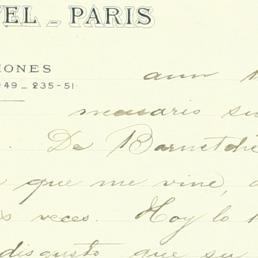 TEL - PARIS
IONES
49 _ 235-51
aun
necesario su
. De Barnetche
que me vine,
s veces. Hoy lo
disgusto que su